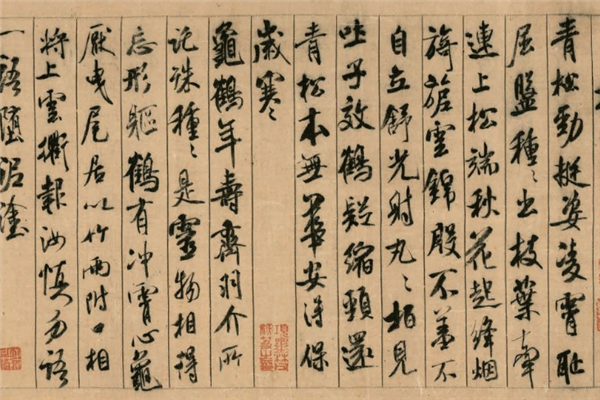 青松勁挺姿凌霄恥
屈盤種〻出枝葉牽
連上松端秋花起絳烟
旖旎雲錦殷不羞不
自立舒光射丸〻柏見
吐子效鶴疑縮頸還
青松本無華安得保
歲寒
龜鶴年壽齊羽介所
託殊種〻是靈物相得
忘形軀鶴有冲霄心龜
厭曳尾居以竹兩附口相
將上雲衢報汝慎勿語
一語墮泥塗